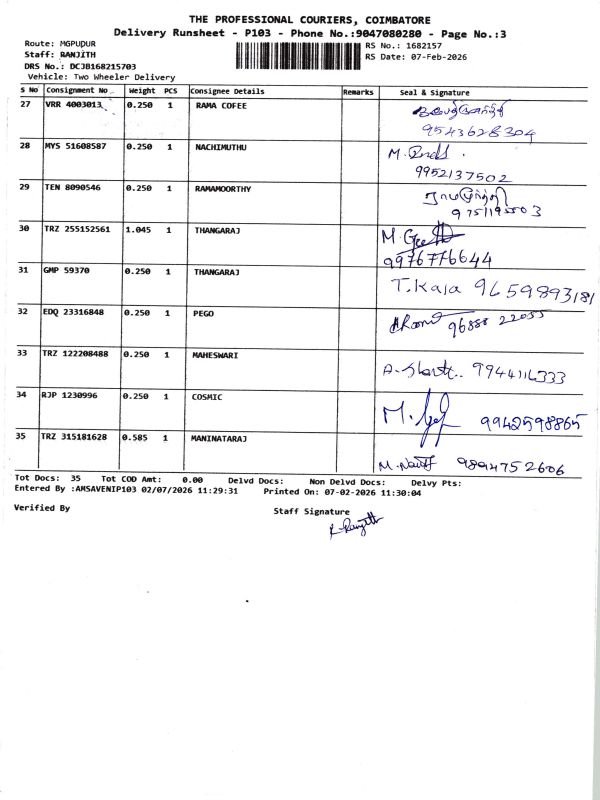 THE PROFESSIONAL COURIERS, COIMBATORE
Delivery Runsheet - P103 - Phone No.:9047080280 - Page No.:3
Route: MGPUDUR
RS No.: 1682157
Staff: RANJITH
RS Date: 07-Feb-2026
DRS No.: DCJB168215703
Vehicle: Two Wheeler Delivery
S No Consignment No Weight PCS Consignee Details Remarks Seal & Signature
27 VRR 4003013 0.250 1 RAMA COFEE
9543628304
28 MYS 51608587 0.250 1 NACHIMUTHU M.
9952137502
29 TEN 8090546 0.250 1 RAMAMOORTHY ராமமூர்த்தி
30 TRZ 255152561 1.045 1 THANGARAJ M.
9976776644
31 GMP 59370 0.250 1 THANGARAJ T.Kala 9659893181
32 EDQ 23316848 0.250 1 PEGO 96888 22055
33 TRZ 122208488 0.250 1 MAHESWARI A. 9944116333
34 RJP 1230996 0.250 1 COSMIC M. 9942598865
35 TRZ 315181628 0.585 1 MANINATARAJ M. 9894752606
Tot Docs: 35 Tot COD Amt: 0.00 Delvd Docs: Non Delvd Docs: Delvy Pts:
Entered By :AMSAVENIP103 02/07/2026 11:29:31 Printed On: 07-02-2026 11:30:04
Verified By Staff Signature